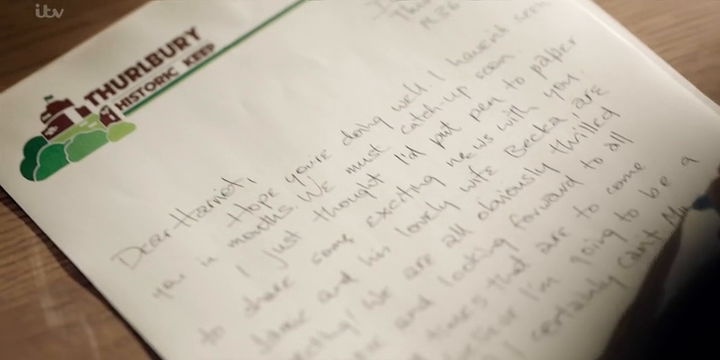 itv
THURLBURY
HISTORIC KEEP
Dear Harriet,
Hope you're doing well. I haven't seen
you in months. We must catch-up soon.
I just thought I'd put pen to paper
to share some exciting news with you.
and his lovely wife Becka are
We are all obviously thrilled
and looking forward to all
times that are to come
I'm going to be a
I certainly can't